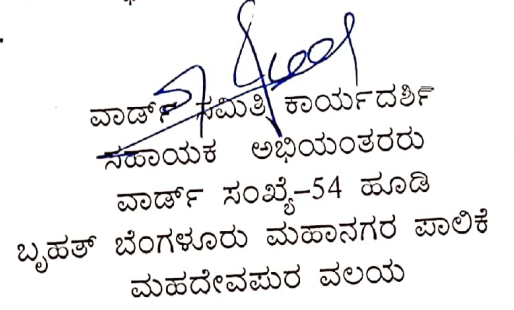 ವಾರ್ಡ್ ಸಮಿತಿ ಕಾರ್ಯದರ್ಶಿ
ಸಹಾಯಕ ಅಭಿಯಂತರರು
ವಾರ್ಡ್ ಸಂಖ್ಯೆ-54 ಹೂಡಿ
ಬೃಹತ್ ಬೆಂಗಳೂರು ಮಹಾನಗರ ಪಾಲಿಕೆ
ಮಹದೇವಪುರ ವಲಯ